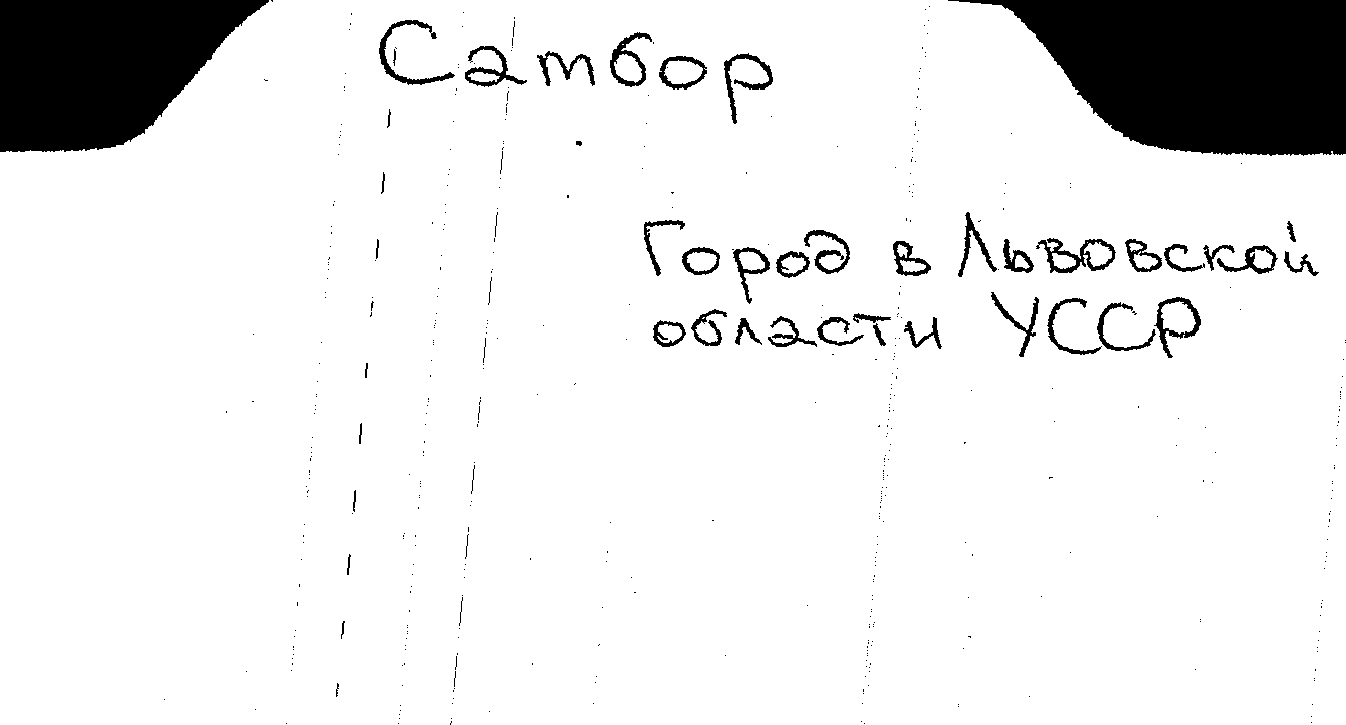 Сатбор
Город в Львовской
области УССР